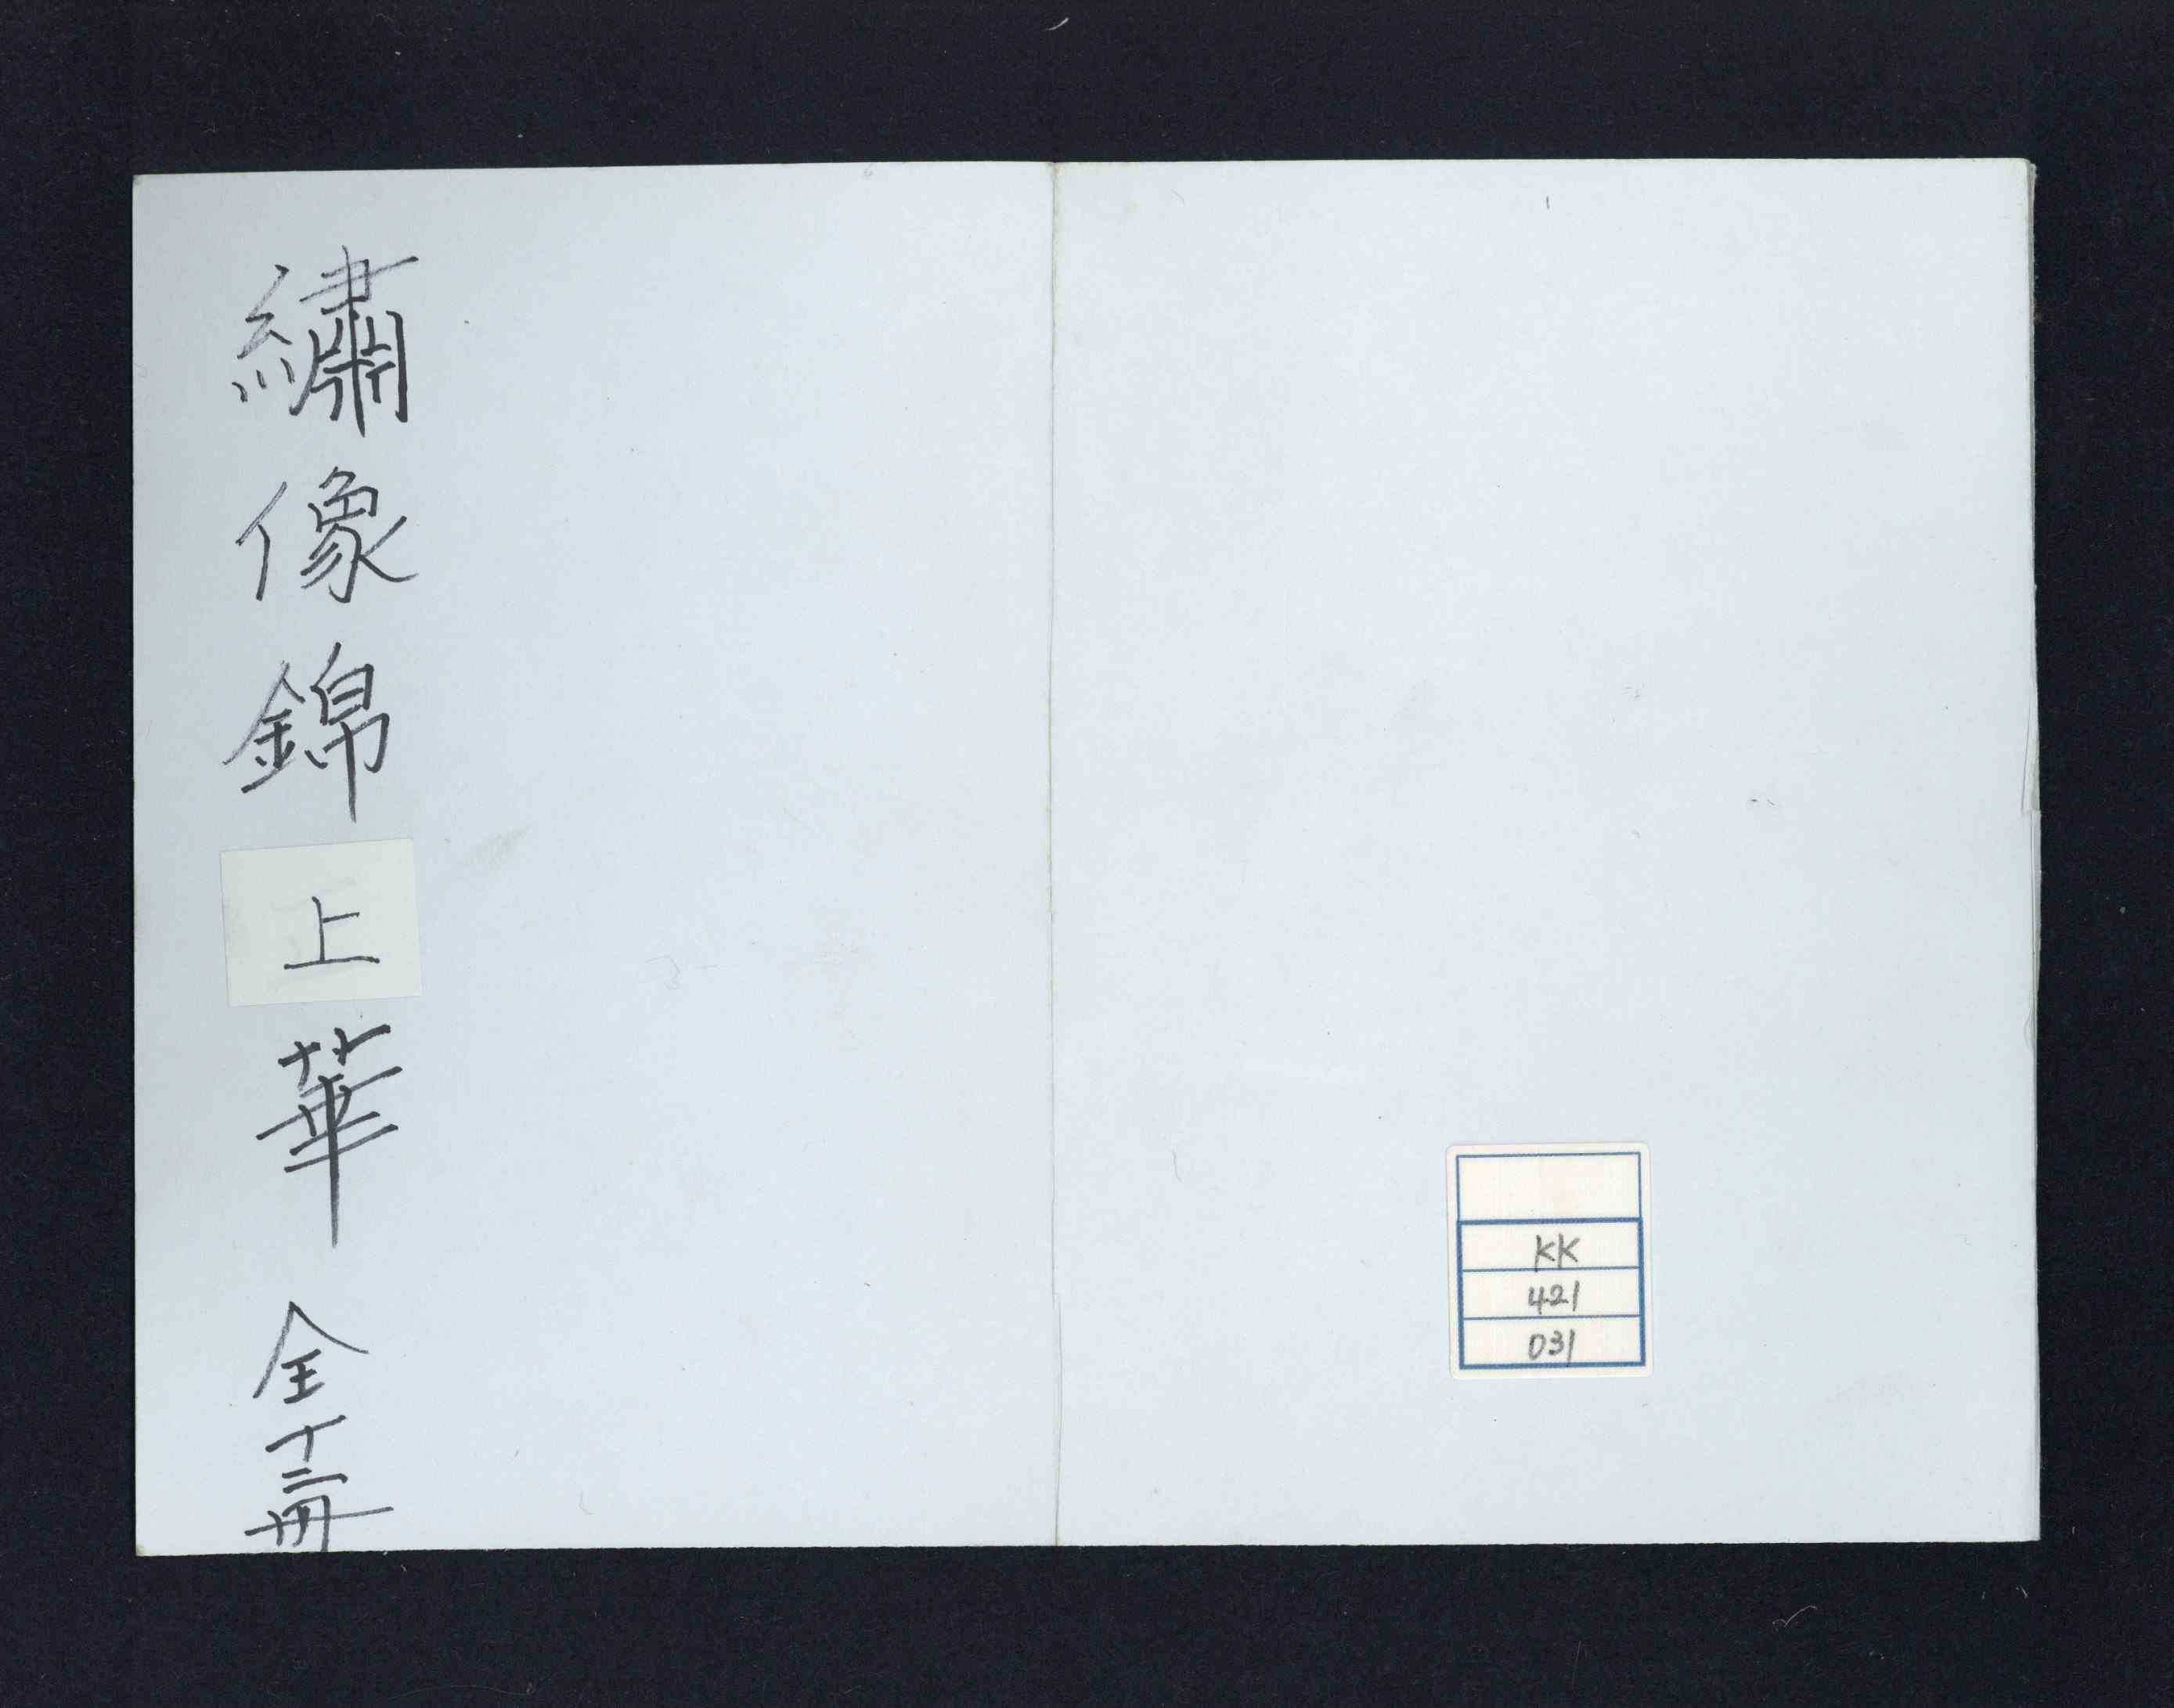 繡像錦上華 全十二冊
KK
421
031